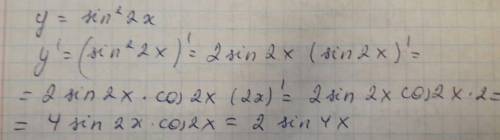 y = sin² 2x
y' = (sin² 2x)' = 2 sin 2x (sin 2x)' =
= 2 sin 2x · cos 2x (2x)' = 2 sin 2x cos 2x · 2 =
= 4 sin 2x · cos 2x = 2 sin 4x